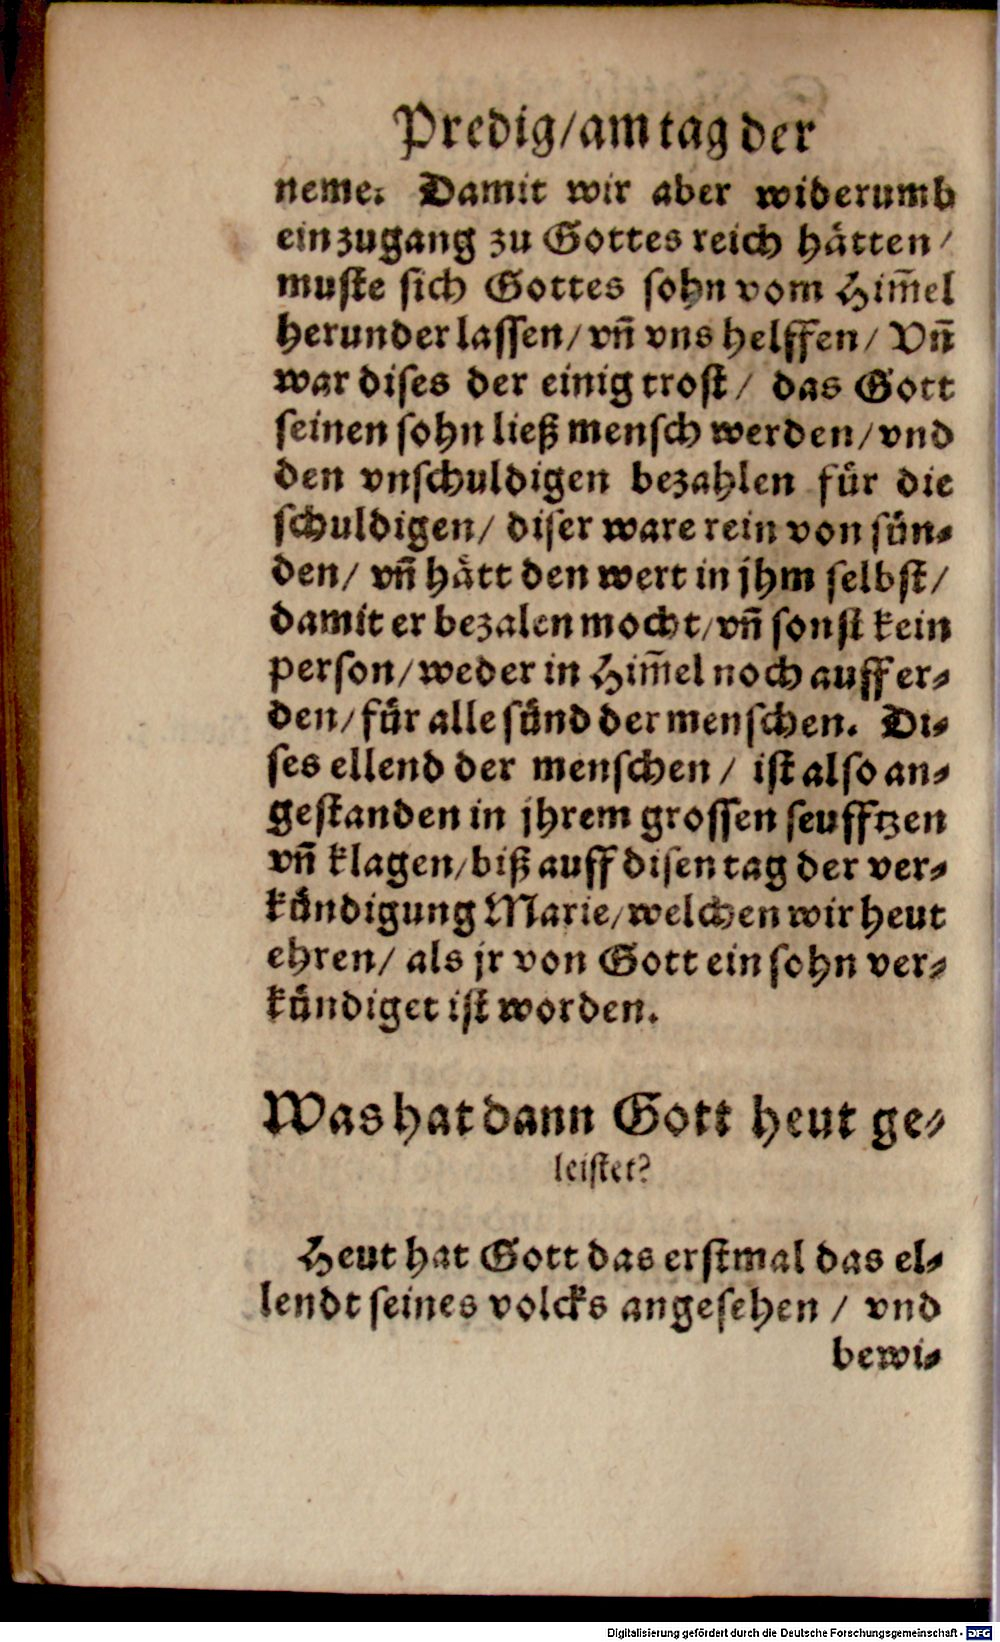 Predig/am tag der
neme. Damit wir aber widerumb
ein zugang zu Gottes reich hätten/
muste sich Gottes sohn vom Him̃el
herunder lassen/vñ vns helffen/ Vñ
war dises der einig trost/ das Gott
seinen sohn ließ mensch werden/vnd
den vnschuldigen bezahlen für die
schuldigen/ diser ware rein von sün-
den/ vñ hätt den wert in jhm selbst/
damit er bezalen mocht/vñ sonst kein
person/weder in Him̃el noch auff er-
den/für alle sünd der menschen. Di-
ses ellend der menschen/ ist also an-
gestanden in jhrem grossen seufftzen
vñ klagen/biß auff disen tag der ver-
kündigung Marie/welchen wir heut
ehren/ als jr von Gott ein sohn ver-
kündiget ist worden.
Was hat dann Gott heut ge-
leistet?
Heut hat Gott das erstmal das el-
lendt seines volcks angesehen/ vnd
bewi-
Digitalisierung gefördert durch die Deutsche Forschungsgemeinschaft - DFG